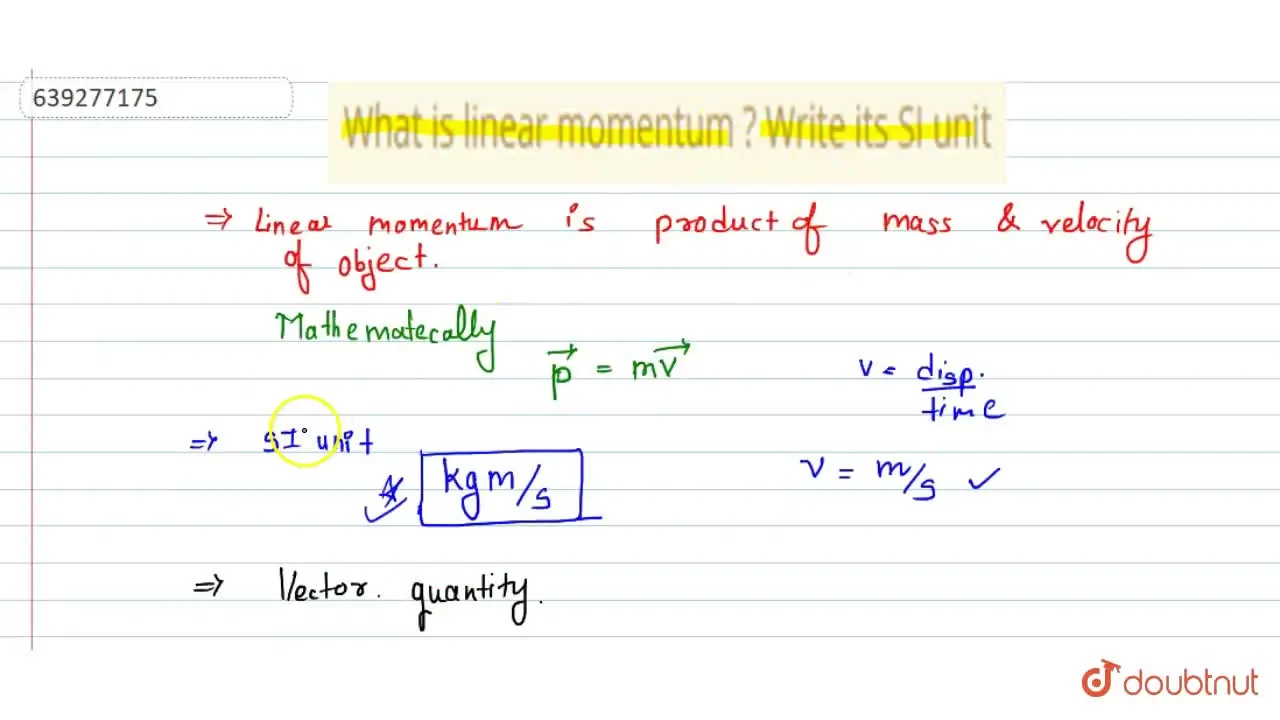 639277175
What is linear momentum ? Write its SI unit
⇒ Linear momentum is product of mass & velocity
of object.
Mathematecally
p⃗ = mv⃗
v = disp.
time
⇒ SI unit
kgm/s
v = m/s ✓
⇒ Vector. quantity.
doubtnut